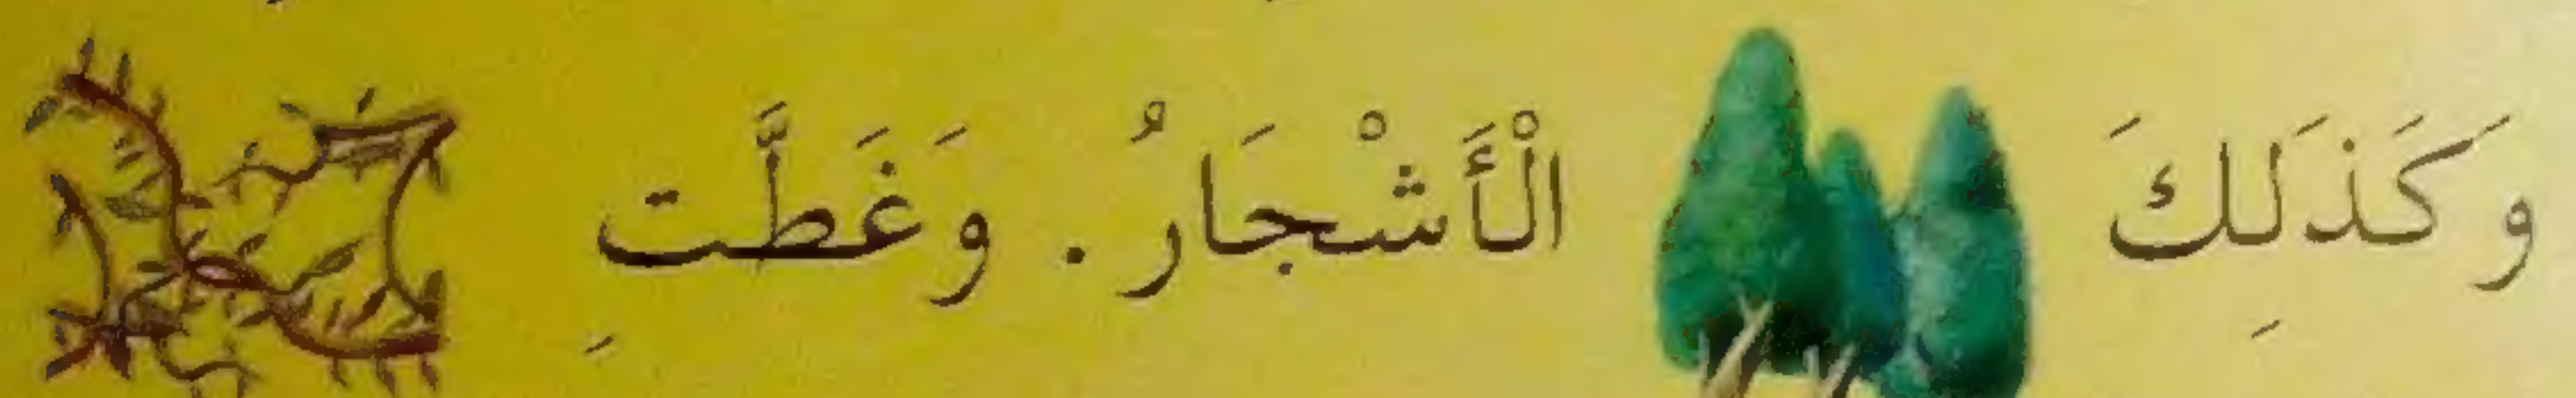 وَكَذَلِكَ الْأَشْجَارُ. وَغَطَّتِ